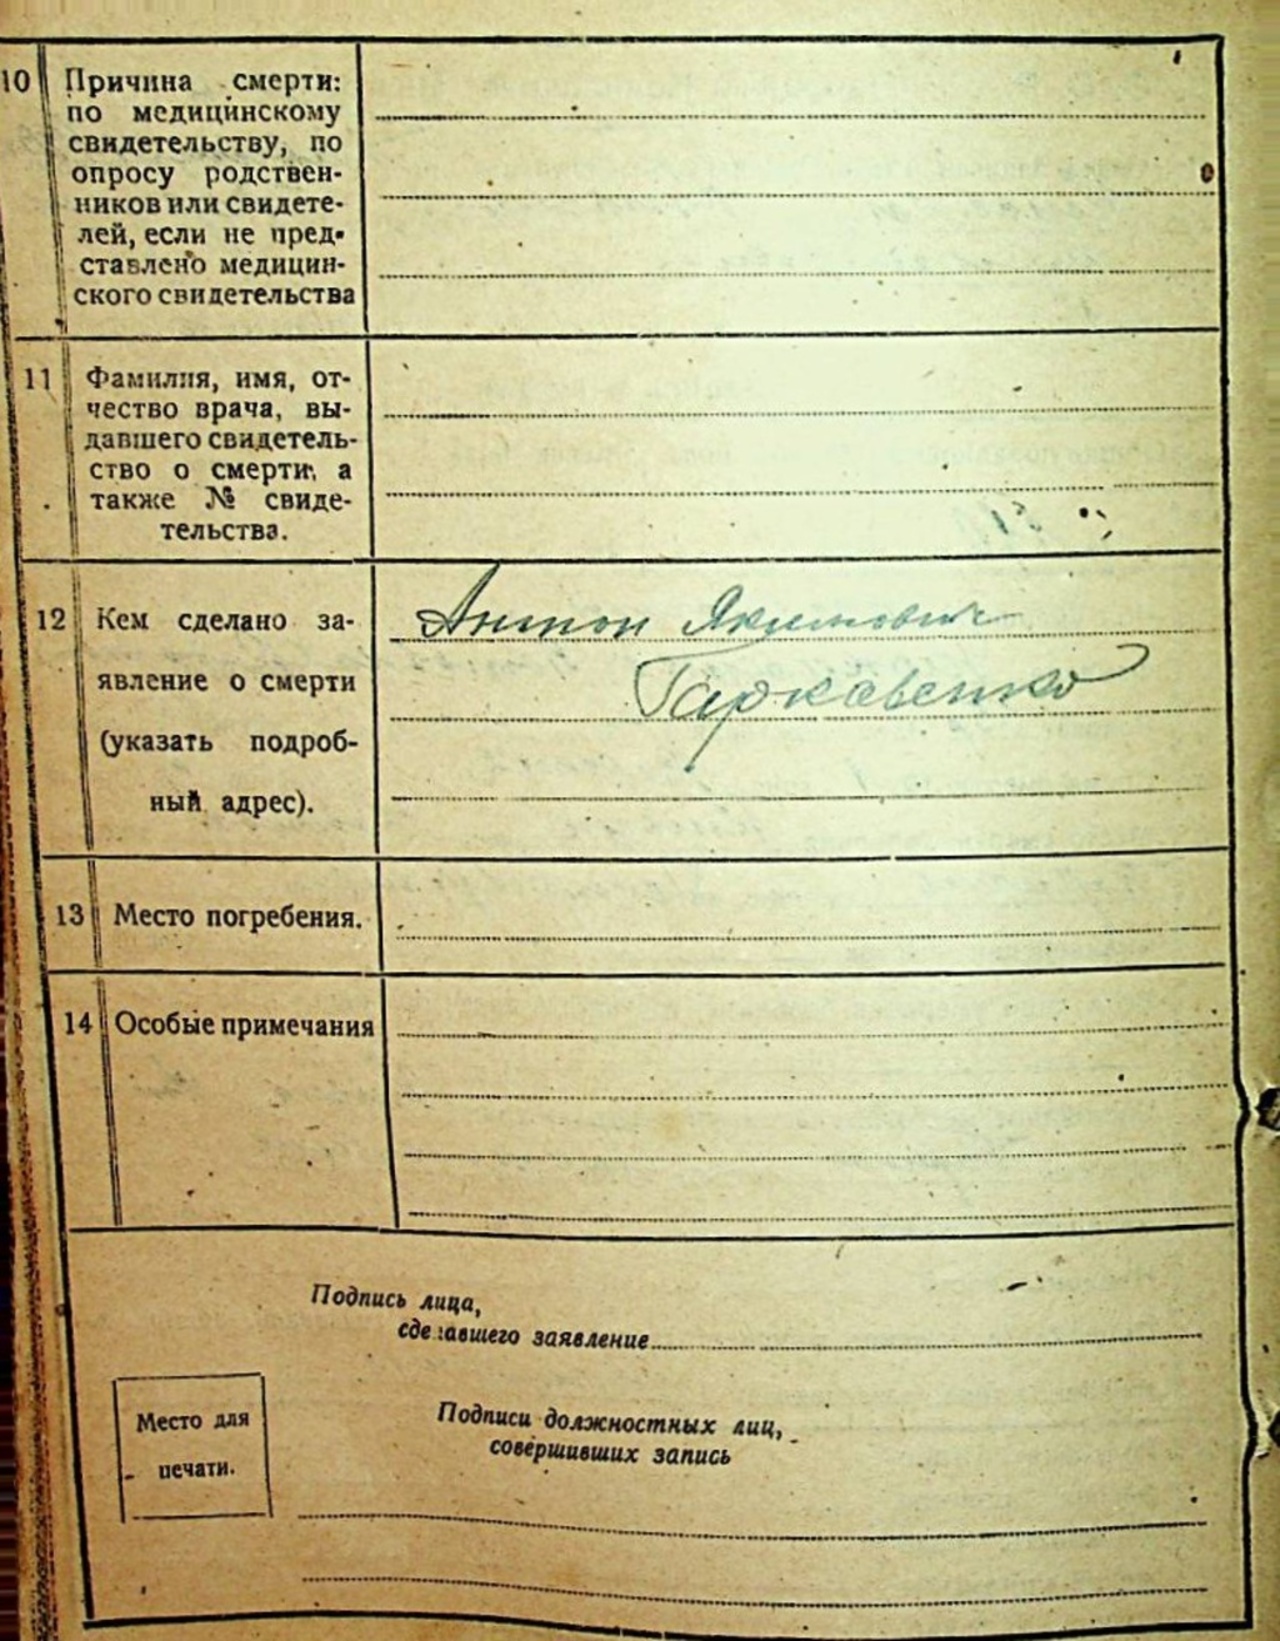 10 Причина смерти:
по медицинскому
свидетельству, по
опросу родствен-
ников или свидете-
лей, если не пред-
ставлено медицин-
ского свидетельства
11 Фамилия, имя, от-
чество врача, вы-
давшего свидетель-
ство о смерти, а
также № свиде-
тельства.
12 Кем сделано за-
явление о смерти
(указать подроб-
ный адрес).
Антон Якимович
Гаркавенко
13 Место погребения.
14 Особые примечания
Подпись лица,
сделавшего заявление
Место для
печати.
Подписи должностных лиц,
совершивших запись